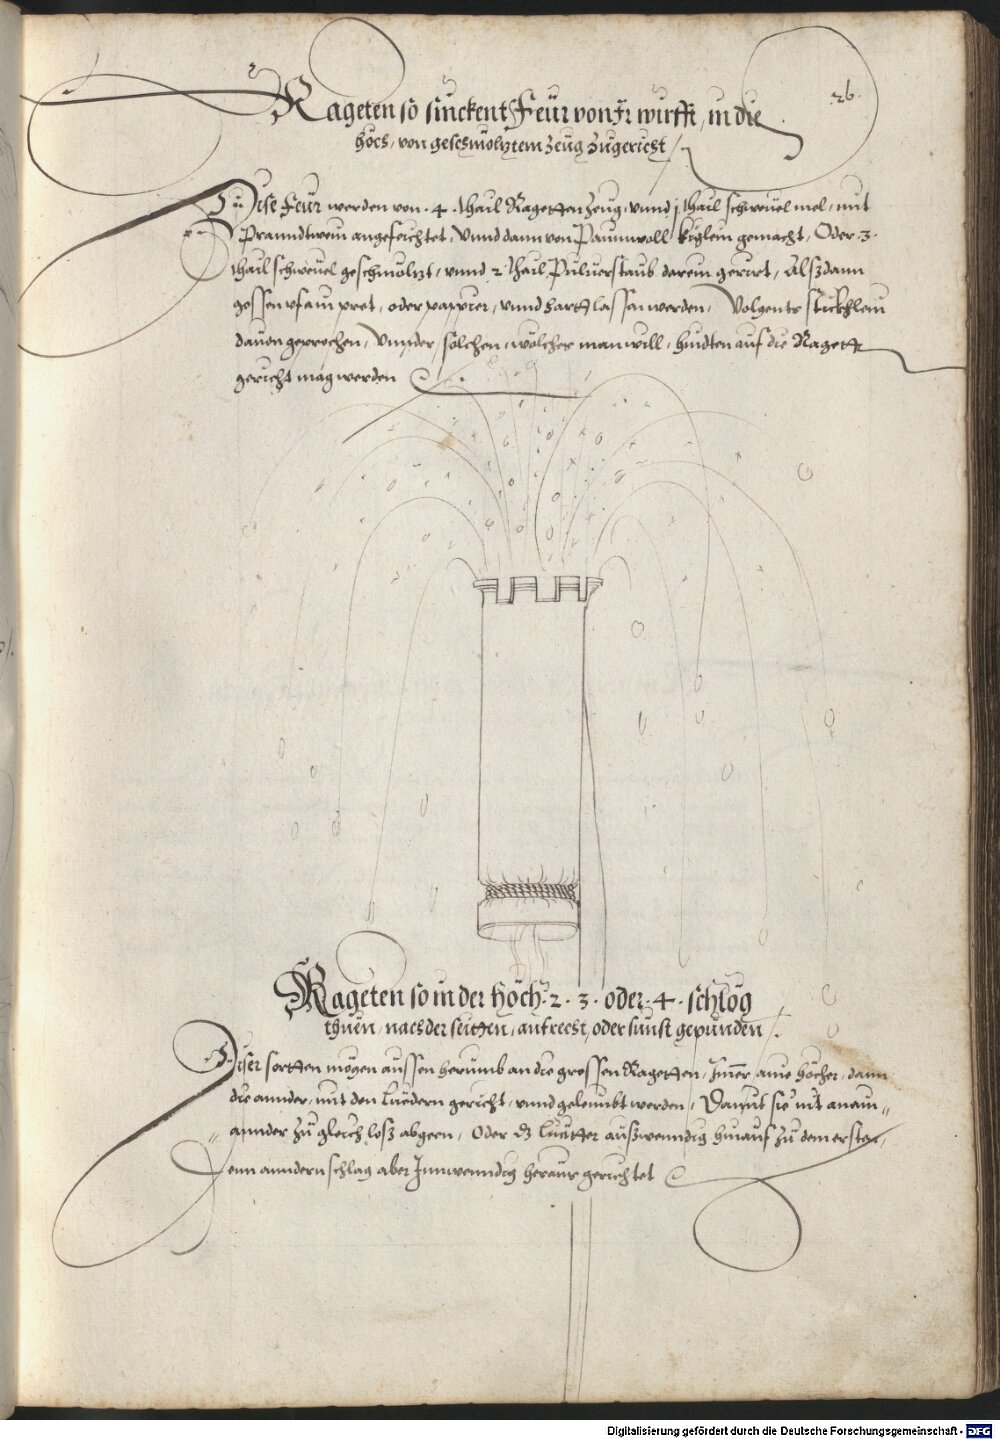 26.
Rageten so sinckent Feür von Ir wirfft, in die
höch, von geschmoltztem zeug zugericht
Dise Feür werden von .4. thail Ragetten zeug, vnnd j thail schweuel mel, mit
Pranndtwein angefeichtet, Vnnd dann von Paumwoll kiglein gemacht, Oder .3.
thail schweuel geschmoltzt, vnnd 2 thail Puluerstaub darein gerürt, Alsz dann
gossen vf ain pret, oder pappier, vnnd hartt lassen werden, Volgents stückhlein
dauon geprochen, Vnnder solchen, wölcher man will, hindten auf die Ragett
gericht mag werden
Rageten so in der höch .2. 3. oder .4. schlög
thuen, nach der seitten, aufrecht, oder sunst gepunden
Diser sortten mögen aussen herumb an die grossen Ragetten, Imer aine höcher, dann
die annder, mit den Luedern gericht, vnnd geleimbt werden, Damit sie nit anain„
„ annder zu gleich losz abgeen, Oder dz Luetter auszwenndig hinauf zu dem ersten,
dem anndern schlag aber Innwenndig heraus gerichtet
Digitalisierung gefördert durch die Deutsche Forschungsgemeinschaft - DFG